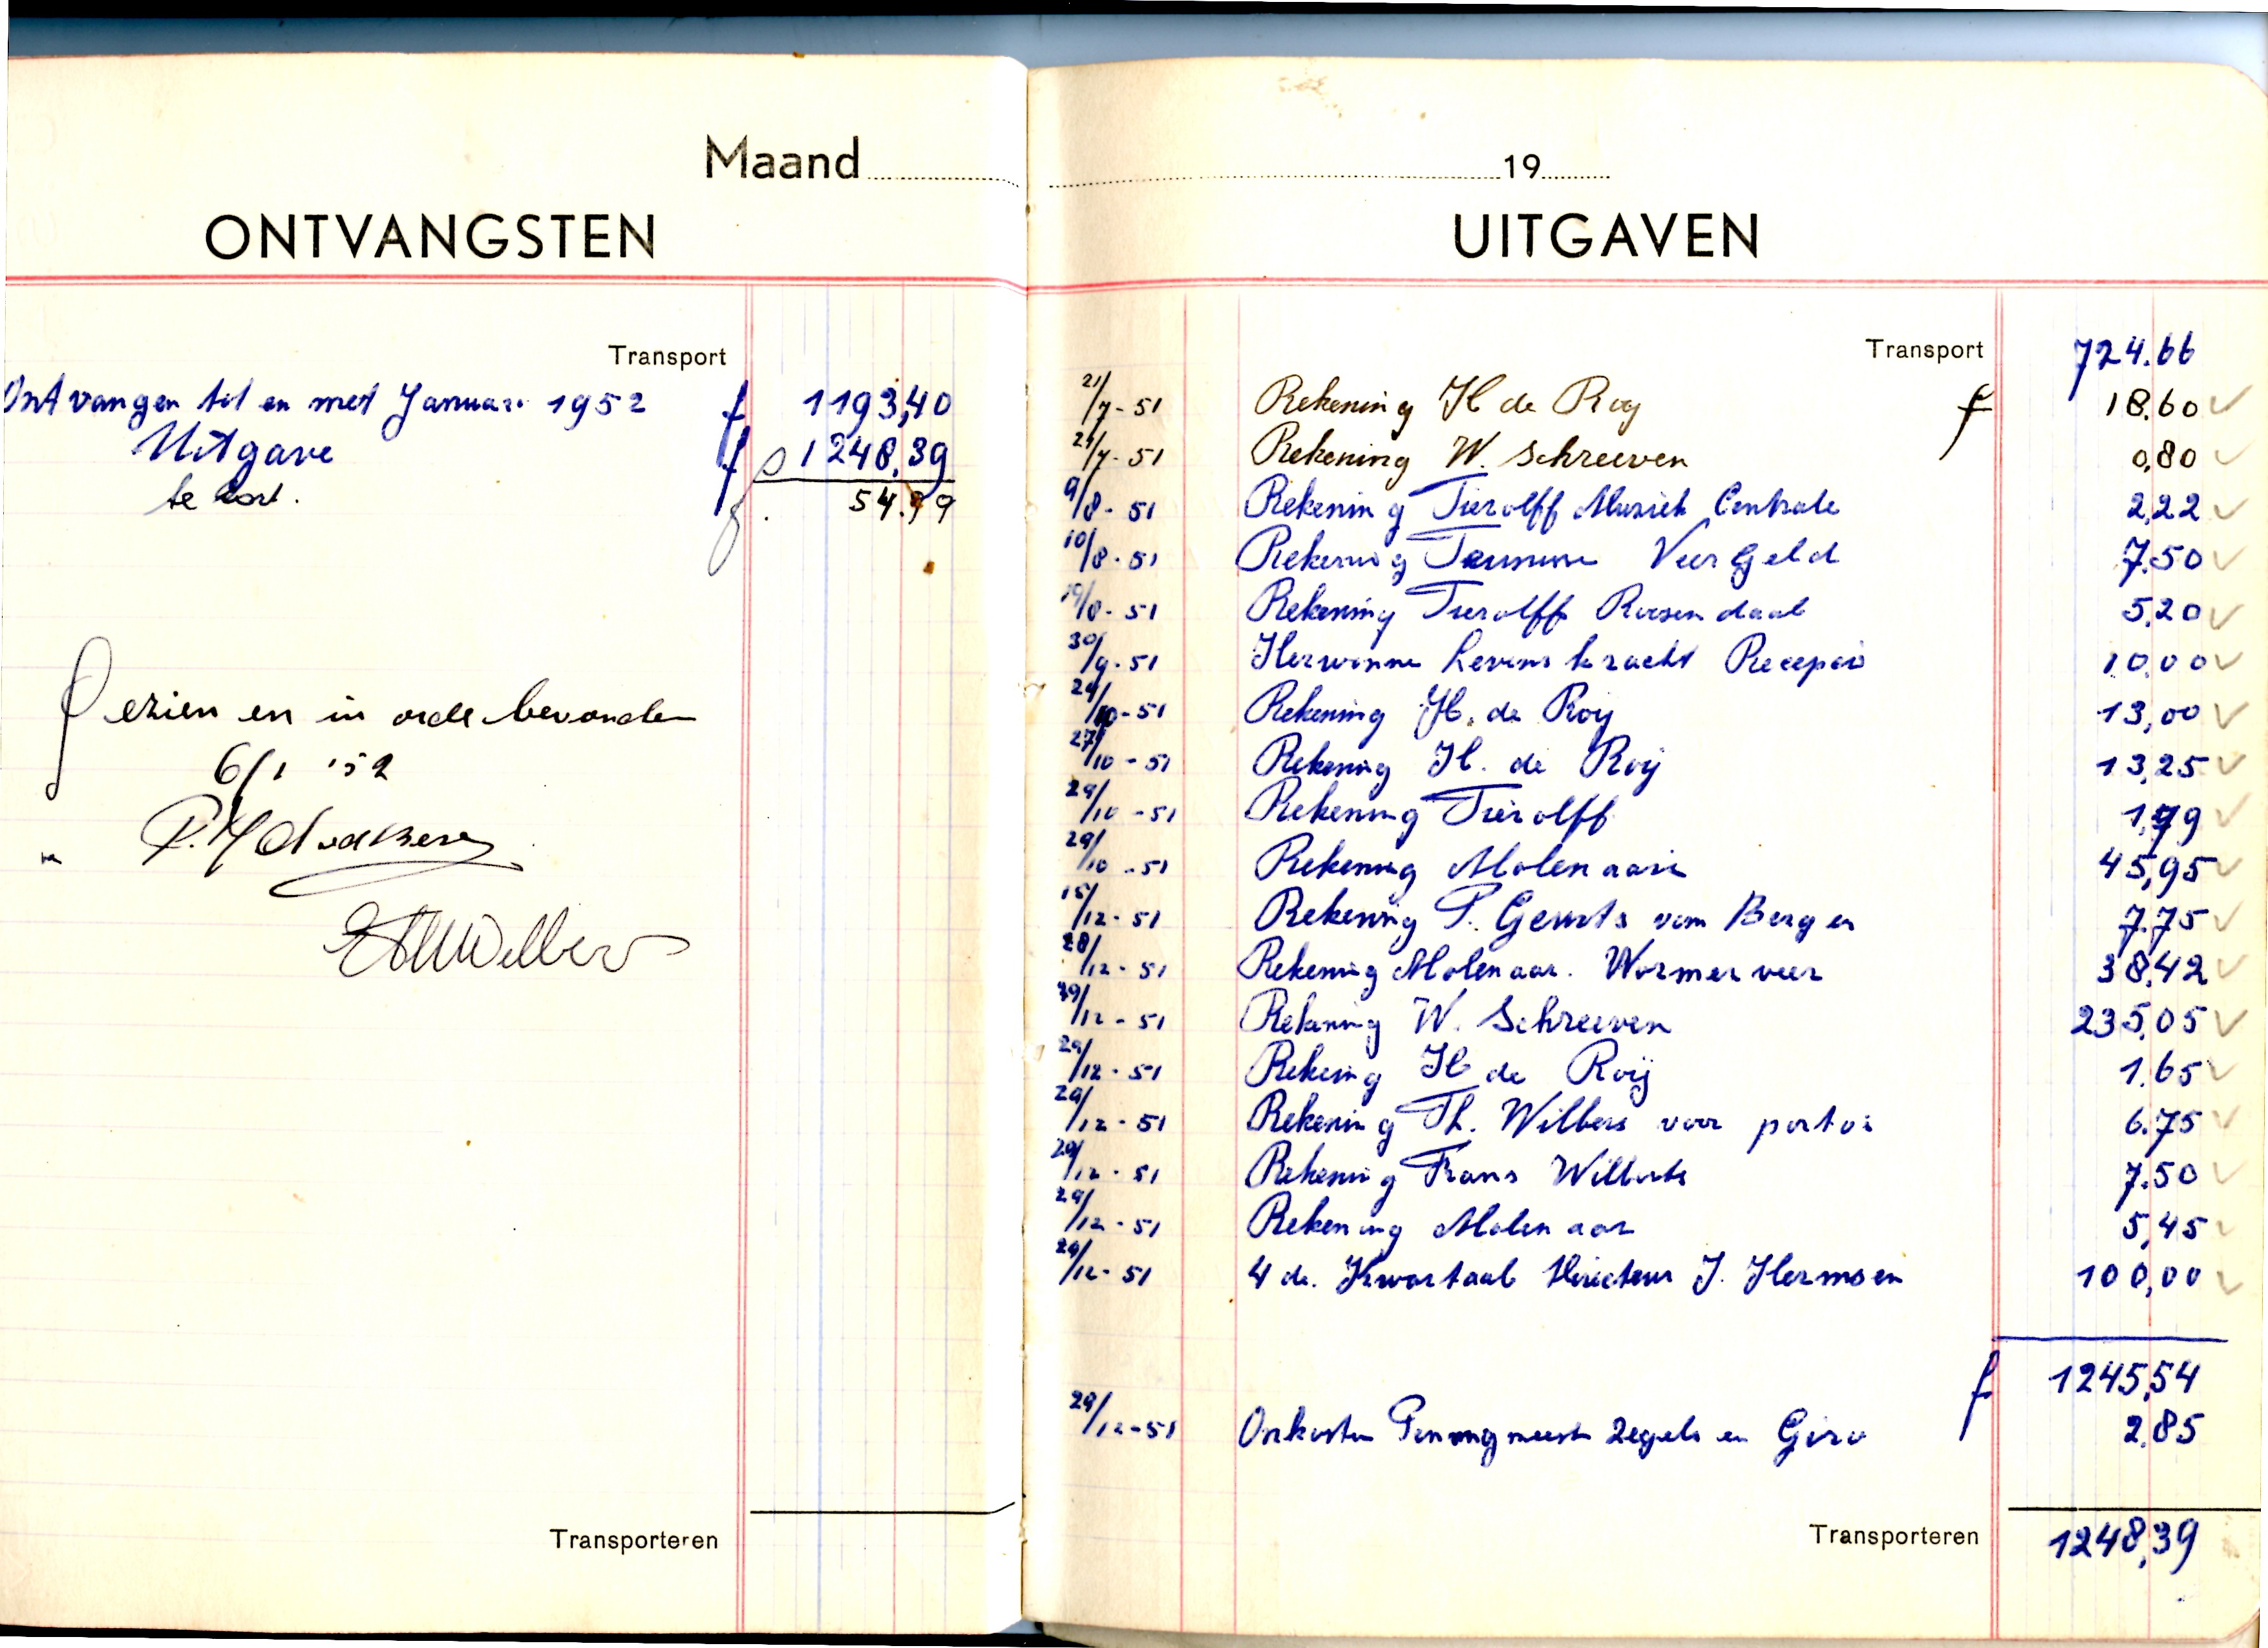 Maand
ONTVANGSTEN
Transport
Ontvangen tot en met Januari 1952 f 1193,40
Uitgave f 1248,39
te kort. f. 54.99
Gezien en in orde bevonden
6/1 '52
19
UITGAVEN
Transport 724.66
21/7-51 Rekening H de Roy f 18.60
21/7-51 Rekening W. Schreeven 0,80
9/8-51 Rekening Tierolff Muziek Centrale 2,22
10/8-51 Rekening Veergeld 7.50
19/8-51 Rekening Tierolff Roosendaal 5.20
30/9-51 Herwonne Levenskracht Recepsie 10.00
24/10-51 Rekening H. de Roij 13,00
27/10-51 Rekening H. de Roij 13,25
29/10-51 Rekening Tierolff 1,79
29/10-51 Rekening Molenaar 45,95
15/12-51 Rekening P. Geurts van Bergen 7.75
28/12-51 Rekening Molenaar. Wormerveer 38,42
29/12-51 Rekening W. Schreeven 235,05
29/12-51 Rekening H de Roij 1.65
29/12-51 Rekening Th. Wilbers voor porto 6.75
29/12-51 Rekening Frans 7.50
29/12-51 Rekening Molenaar 5,45
29/12-51 4 de. Kwartaal Directeur J. Hermsen 100,00
f 1245,54
29/12-51 Onkosten Penningmeester zegels en Giro 2.85
Transporteren
Transporteren 1248,39